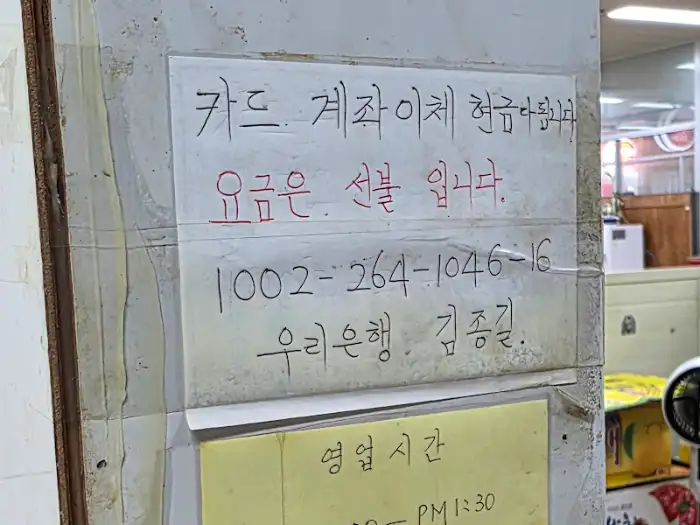 카드 계좌이체 현금 다됩니다
요금은 선불 입니다.
1002-264-1046-16
우리은행 김종길.
영업시간
PM 1:30